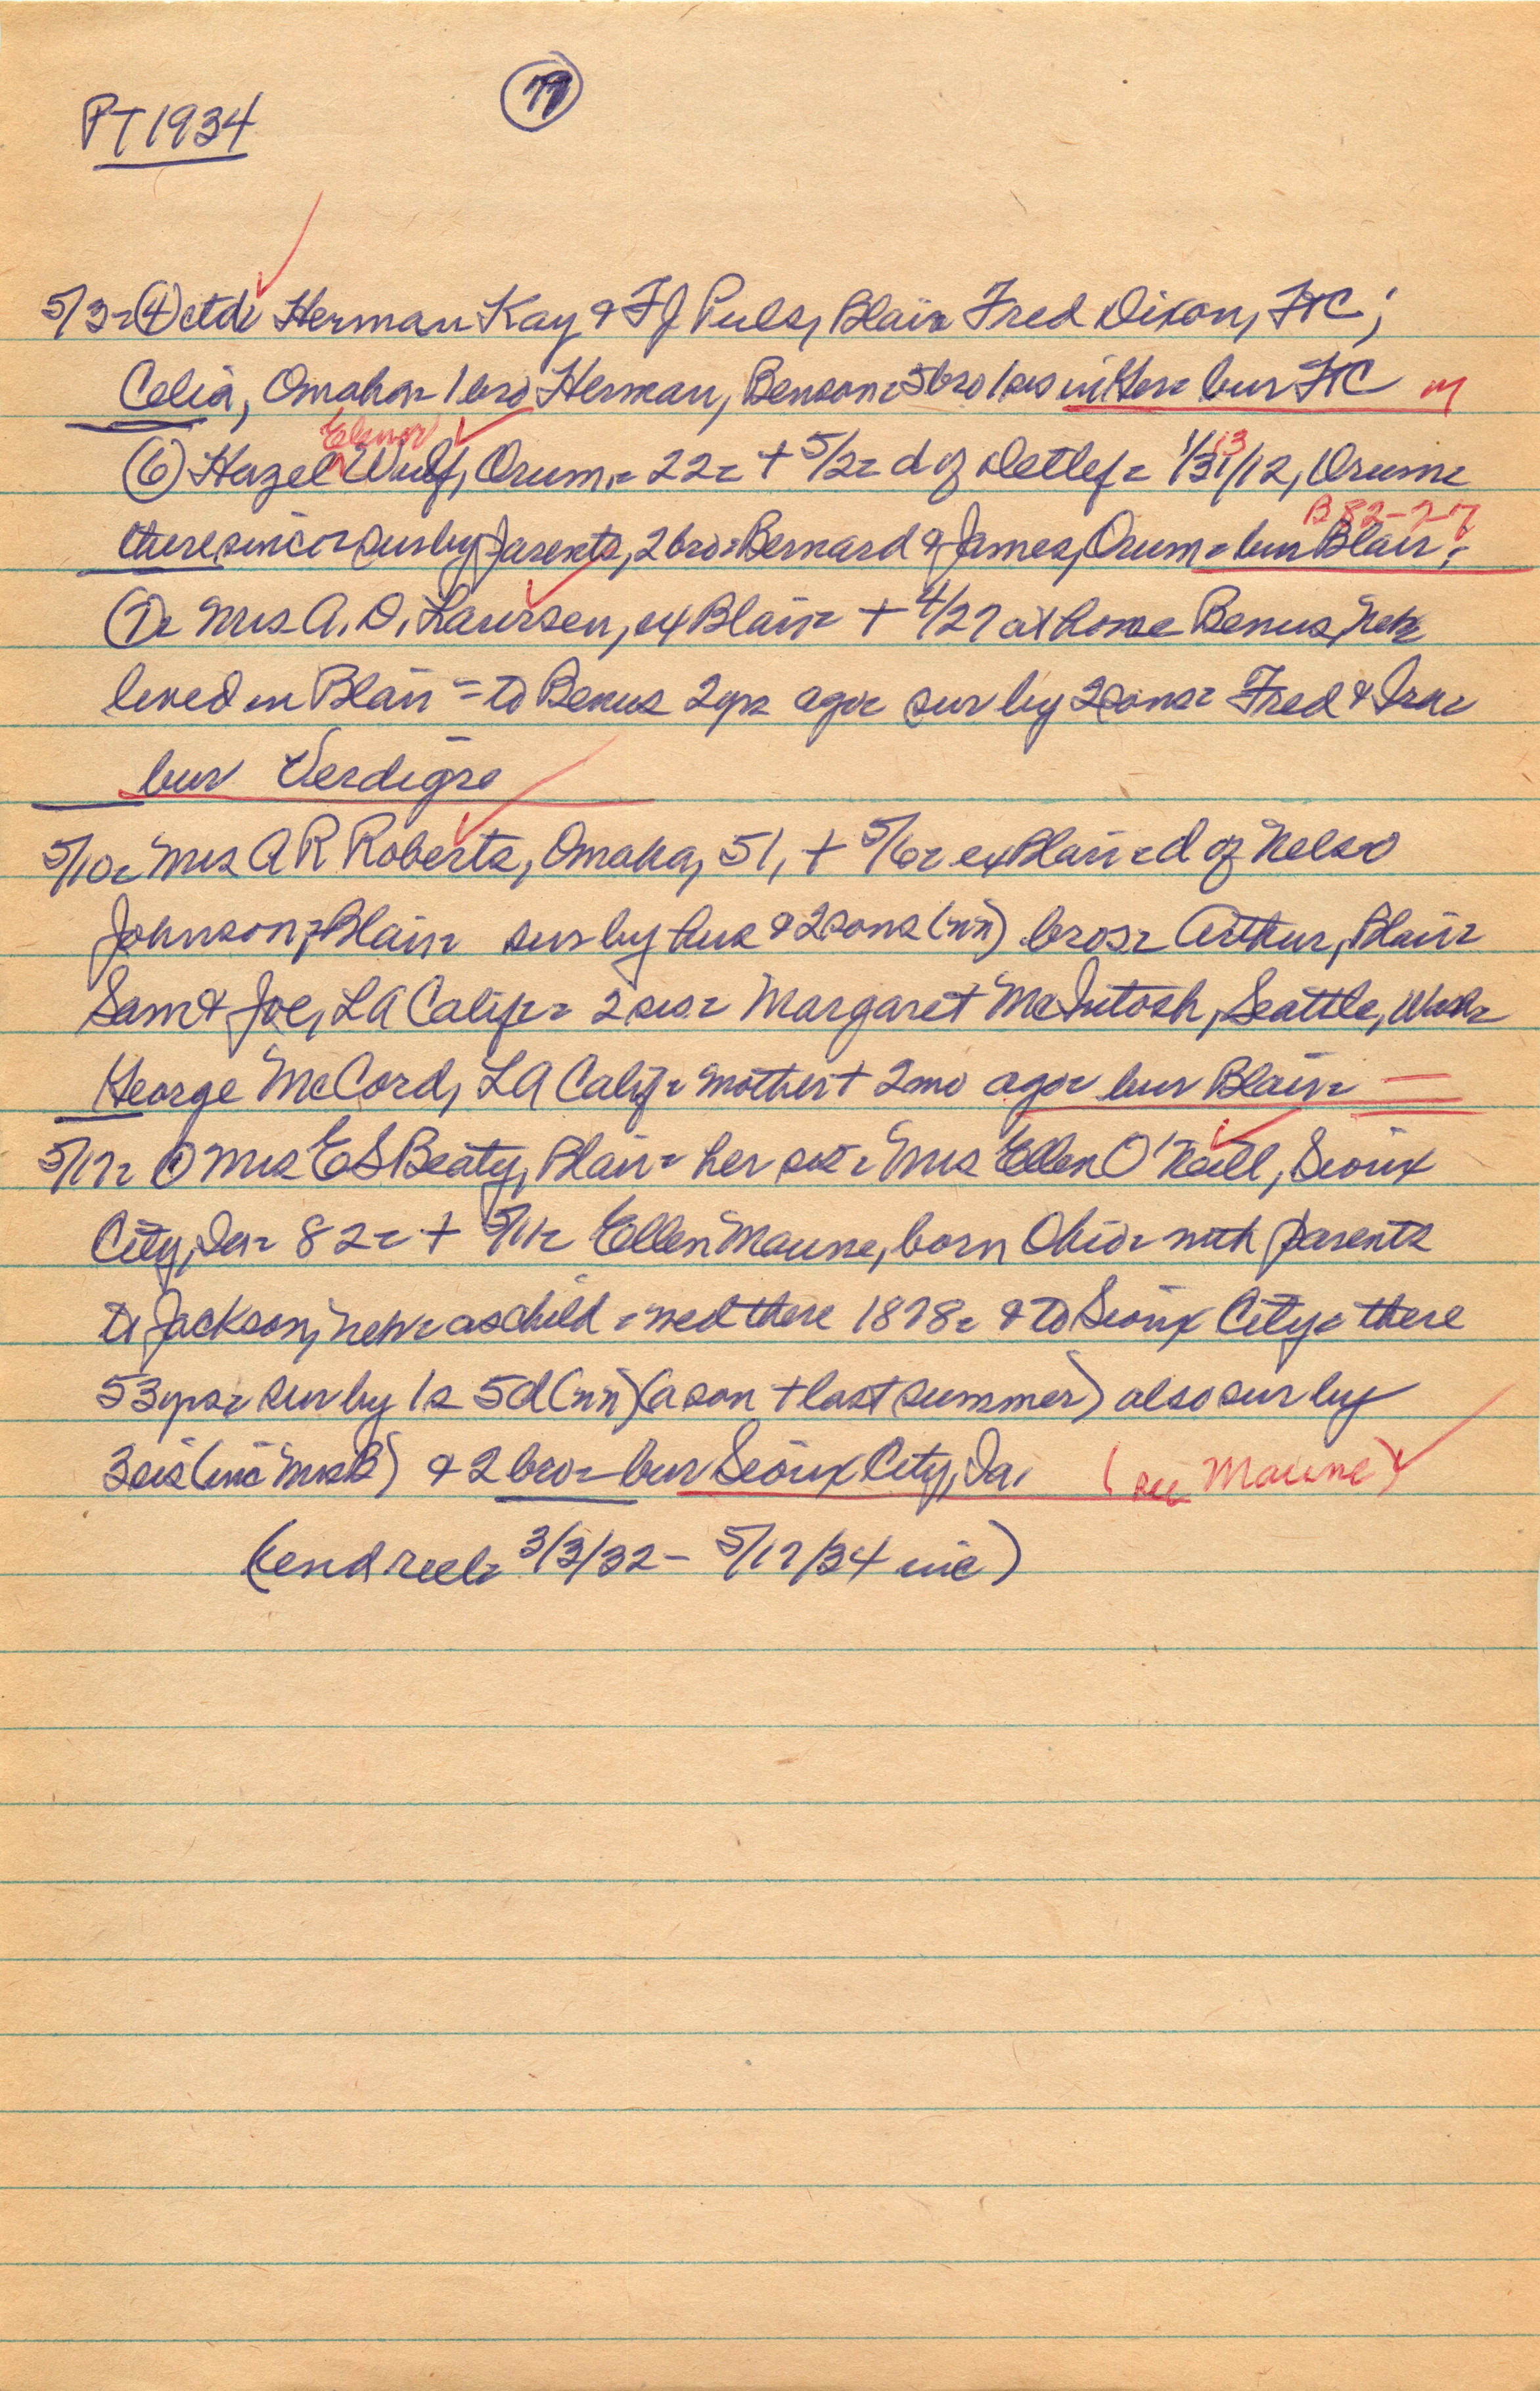 PT 1934
5/3 = (4) ctd: Herman Kay & FJ Puls, Blair Fred Dixon, FTC;
Celia, Omaha = 1 bro Herman, Benson = 5 bro 1 sis in Ger = bur FTC
Elenor
(6) Hazel Wulf, Orum = 22 = + 5/2 = d of Detlef = 1/31/12, Orum =
13
B 82-2-7
there since = sur by parents, 2 bro = Bernard & James, Orum = bur Blair;
(7) = Mrs A. D. Laursen, ex Blair = + 4/27 at home Benus, Neb =
lived in Blair = to Benus 2 yrs ago = sur by 2 sons = Fred & Ira =
bur Verdigre
5/10 = Mrs A R Roberts, Omaha, 51, + 5/6 = ex Blair = d of Nels
Johnson, Blair = sur by hus & 2 sons (nn) bros = Arthur, Blair =
Sam & Joe, LA Calif = 2 sis = Margaret McIntosh, Seattle, Wash =
George McCord, LA Calif = mother + 2 mo ago = bur Blair =
5/17 = Mrs E S Beaty, Blair = her sis = Mrs Ellen O'Neill, Sioux
City, Ia = 82 = + 5/11 = Ellen Maune, born Ohio = with parents
to Jackson, Neb = as child = med there 1878 = & to Sioux City = there
53 yrs = sur by 1 s 5 d (nn) (a son + last summer) also sur by
3 sis (inc Mrs B) & 2 bro = bur Sioux City, Ia. (see Maune)
(end reel = 3/3/32 - 5/17/34 inc)